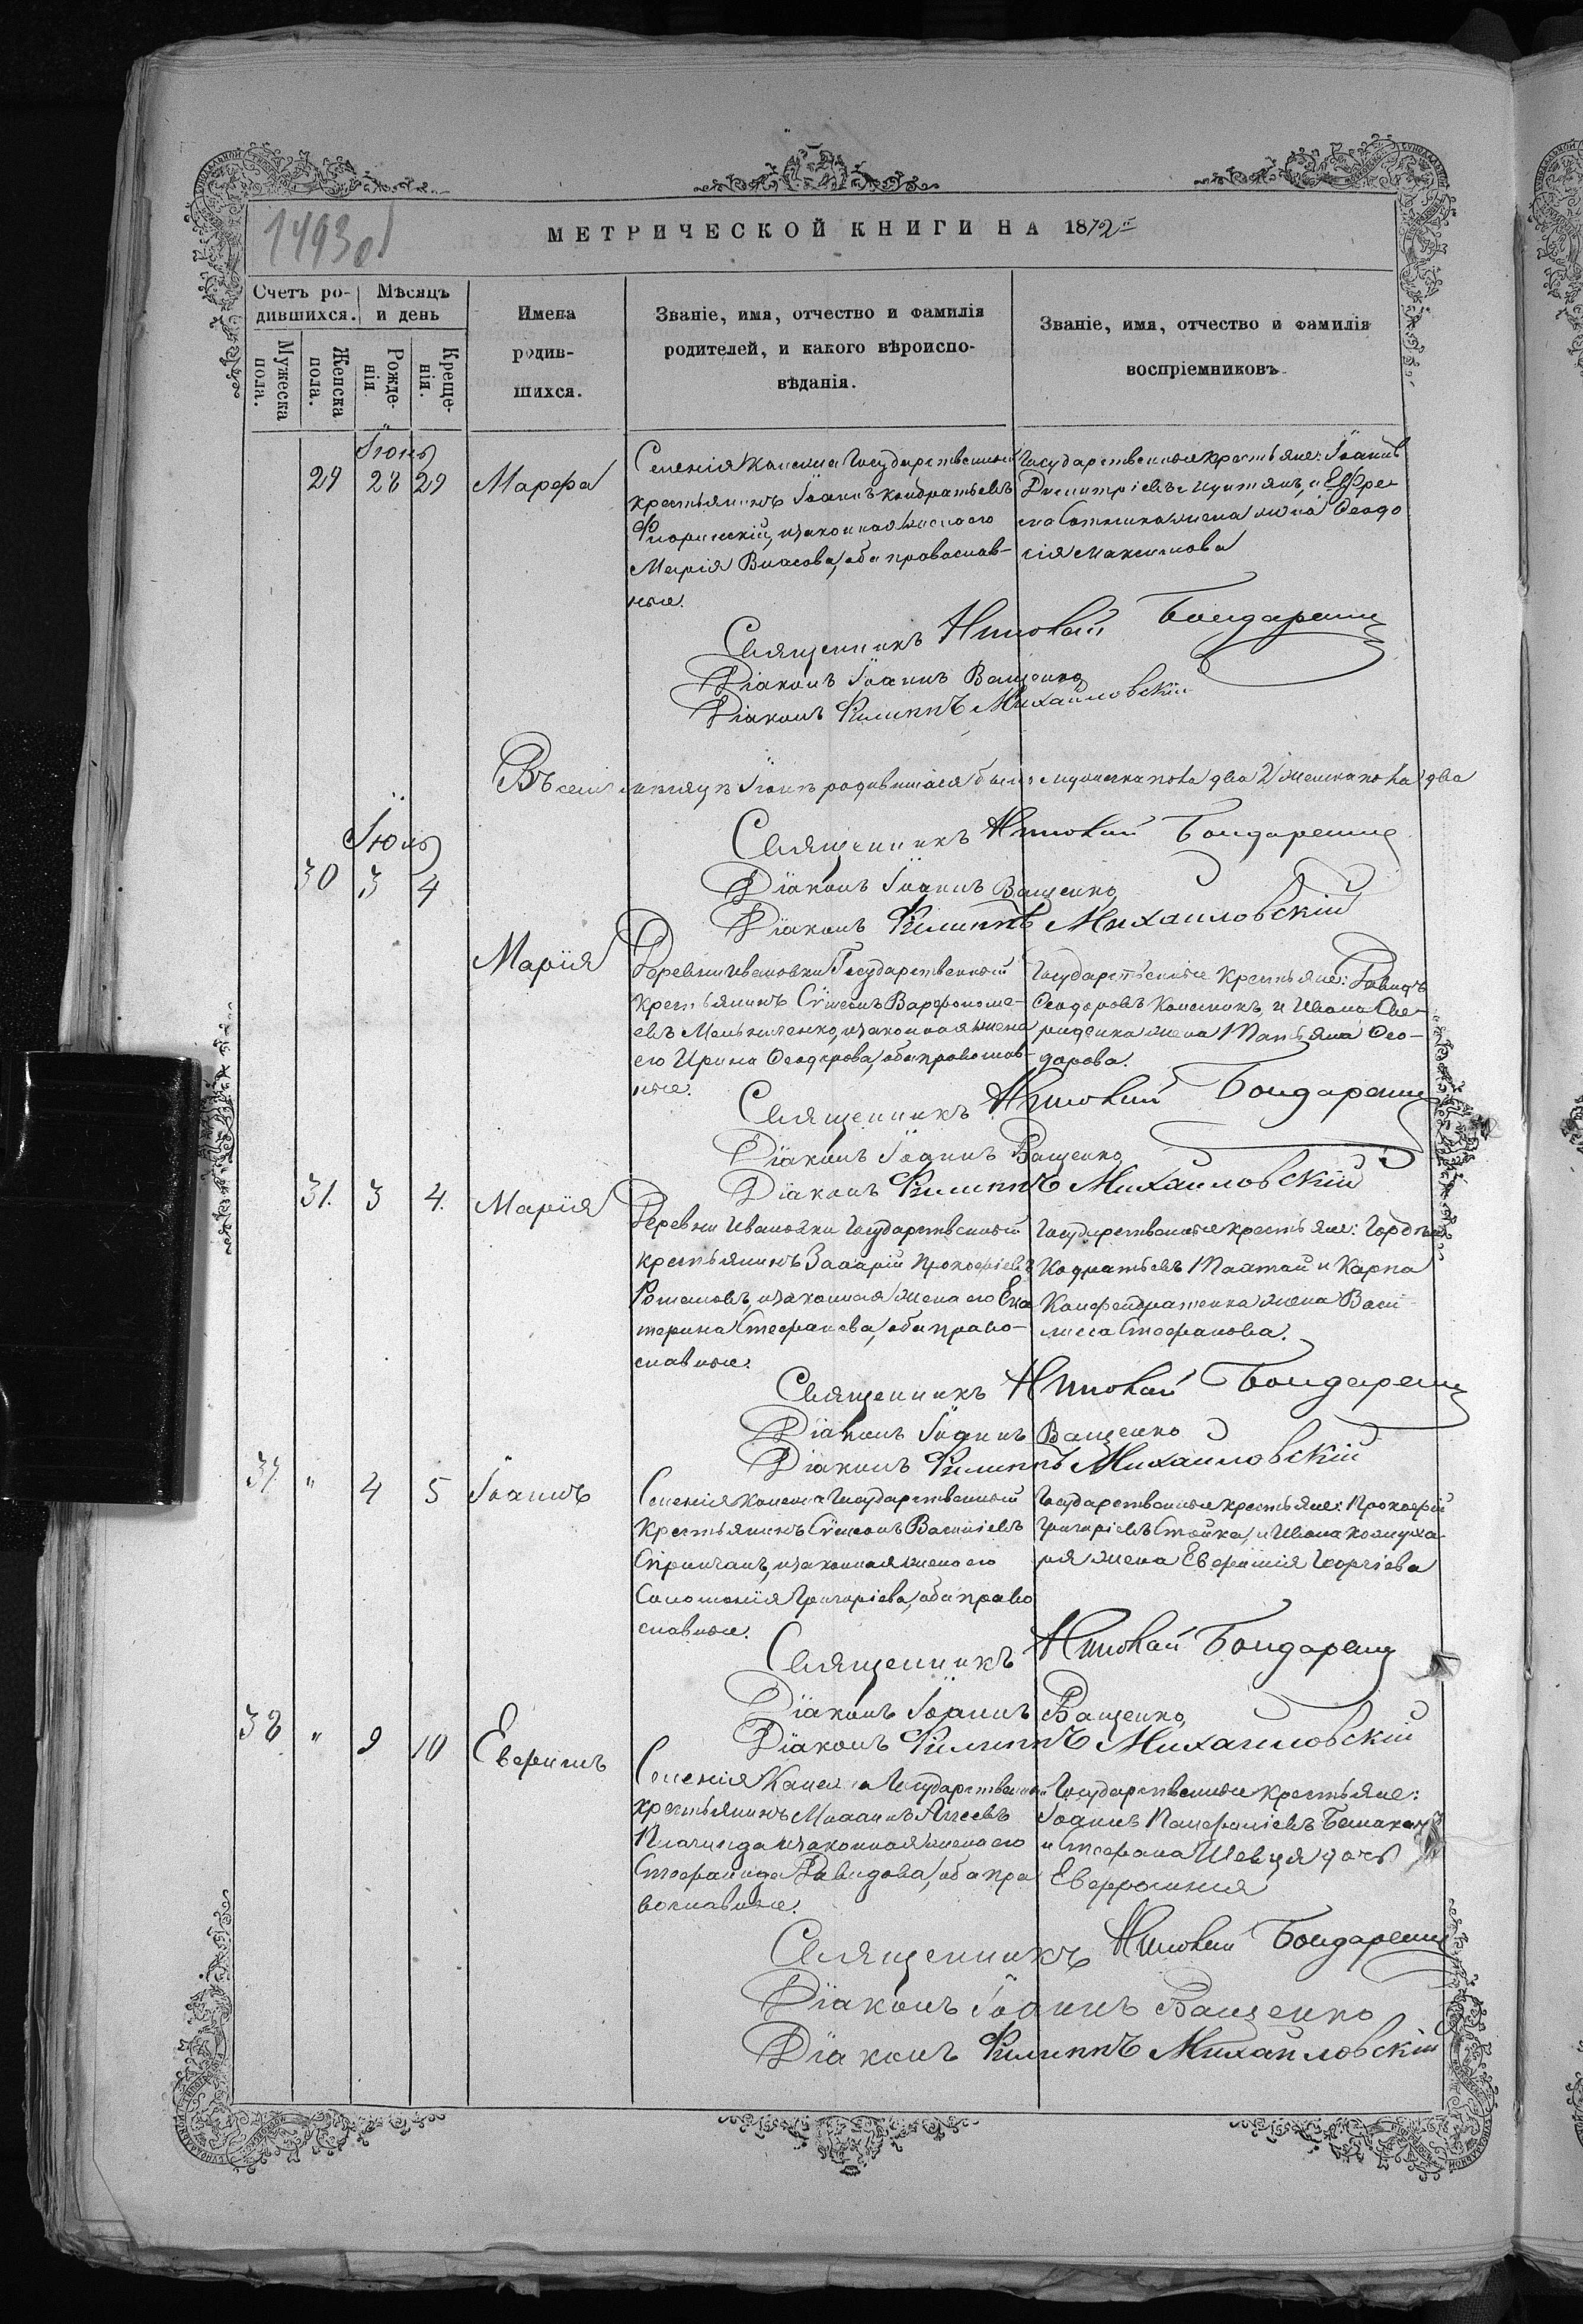 1493 об
МЕТРИЧЕСКОЙ КНИГИ НА 1872 й
Счетъ ро-
дившихся.
Мѣсяцъ
и день
Мужеска
пола.
Женска
пола.
Рожде-
нія
Креще-
нія.
Имена
родив-
шихся.
Званіе, имя, отчество и фамилія
родителей, и какого вѣроиспо-
вѣданія.
Званіе, имя, отчество и фамилія
воспріемниковъ
Іюнь
29 28 29 Марфа
Селенія Государственный
крестьянинъ Іоаннъ Кондратьевъ
и законная жена его
Марія Власова, оба православ-
ные.
Государственные крестьяне: Іоаннъ
Димитріевъ и Ефре-
ма жена Феодо
сія Максимова
Священникъ Николай Бондаренко
Діаконъ Іоаннъ Ващенко
Діаконъ Филиппъ Михайловскій
Въ семъ мѣсяцѣ Іюнѣ родившихся было мужеска пола два 2 женска пола два
Священникъ Николай Бондаренко
Діаконъ Іоаннъ Ващенко
Діаконъ Филиппъ Михайловскій
Іюль
30 3 4
Марія
Деревни Ивановки Государственный
крестьянинъ Сѵмеонъ Варфоломе-
евъ Мельниченко, и законная жена
его Ирина Феодорова, оба православ-
ные.
Государственные крестьяне: Давидъ
Феодоровъ Колесникъ, и Ивана Сви-
риденка жена Татьяна Фео-
дорова.
Священникъ Николай Бондаренко
Діаконъ Іоаннъ Ващенко
Діаконъ Филиппъ Михайловскій
31. 3 4. Марія
Деревни Ивановки Государственный
крестьянинъ Захарій Прокофіевъ
Романовъ, и законная жена его Ека
терина Стефанова, оба право-
славные.
Государственные крестьяне: Гордѣй
Кодратьевъ и Карпа
жена Васи-
лисса Стефанова.
Священникъ Николай Бондаренко
Діаконъ Іоаннъ Ващенко
Діаконъ Филиппъ Михайловскій
37 " 4 5 Іоаннъ
Селенія Государственный
крестьянинъ Сѵмеонъ Василіевъ
и законная жена его
Соломонія Григоріева, оба право
славные.
Государственные крестьяне: Прокофій
Григоріевъ Стойка, и Ивана
жена Евфимія Георгіева
Священникъ Николай Бондаренко
Діаконъ Іоаннъ Ващенко
Діаконъ Филиппъ Михайловскій
38 " 9 10 Евфимъ
Селенія Государственный
крестьянинъ
и законная жена его
Стефанида Давидова, оба пра
вославные.
Государственные крестьяне:
Іоаннъ
и Стефана Шевця дочь
Евфросинія
Священникъ Николай Бондаренко
Діаконъ Іоаннъ Ващенко
Діаконъ Филиппъ Михайловскій